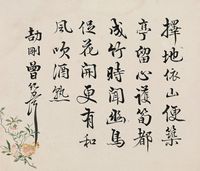 擇地依山便築
亭留心護筍都
成竹時聞幽鳥
促花開更有和
風吹酒熟
劼剛曾紀澤